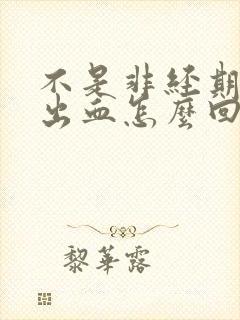 不是非经期
出血怎麼回
黎華露